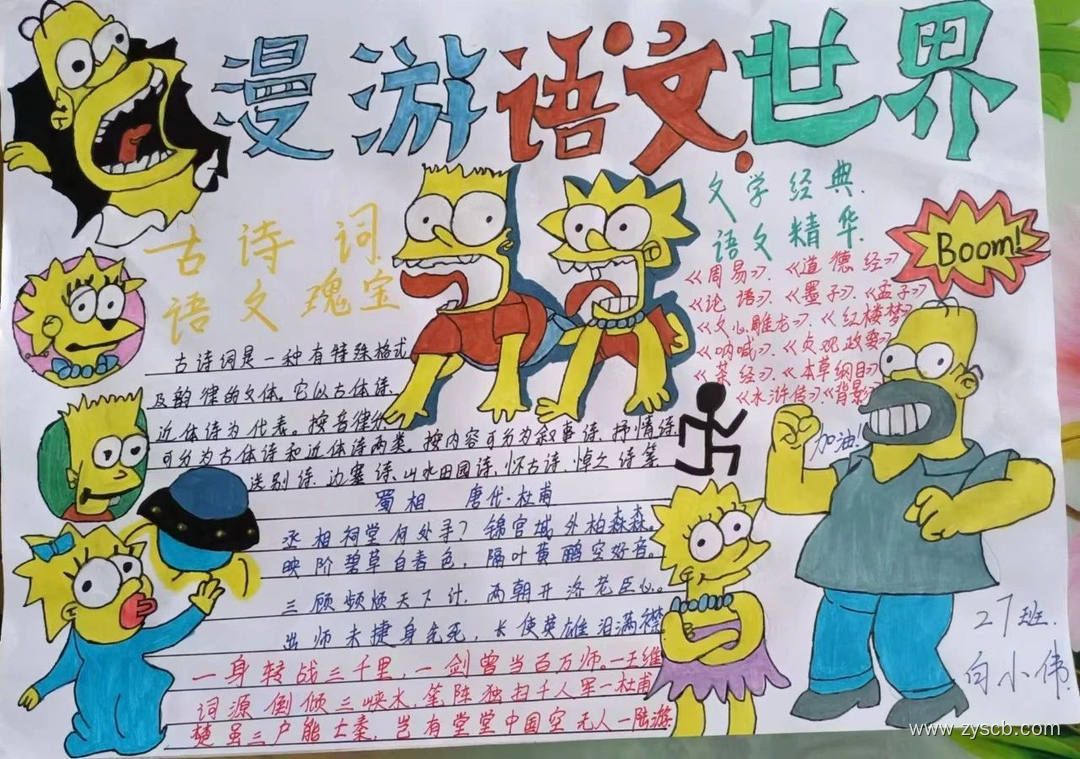 漫游语文世界
古诗词
语文瑰宝
文学经典.
语文精华.
Boom!
《周易》、《道德经》
《论语》、《墨子》、《孟子》
《文心雕龙》、《红楼梦》
《呐喊》、《贞观政要》
《茶经》、《本草纲目》
《水浒传》《背影》
加油!
古诗词是一种有特殊格式
及韵律的文体。它以古体诗、
近体诗为代表。按音律分
可分为古体诗和近体诗两类。按内容可分为叙事诗、抒情诗、
送别诗、边塞诗、山水田园诗、怀古诗、悼亡诗等
蜀相 唐代·杜甫
丞相祠堂何处寻？锦官城外柏森森。
映阶碧草自春色，隔叶黄鹂空好音。
三顾频烦天下计，两朝开济老臣心。
出师未捷身先死，长使英雄泪满襟
一身转战三千里，一剑曾当百万师。—王维
词源倒倾三峡水，笔阵独扫千人军—杜甫
楚虽三户能亡秦，岂有堂堂中国空无人—陆游
27班.
向小伟
www.zyscb.com